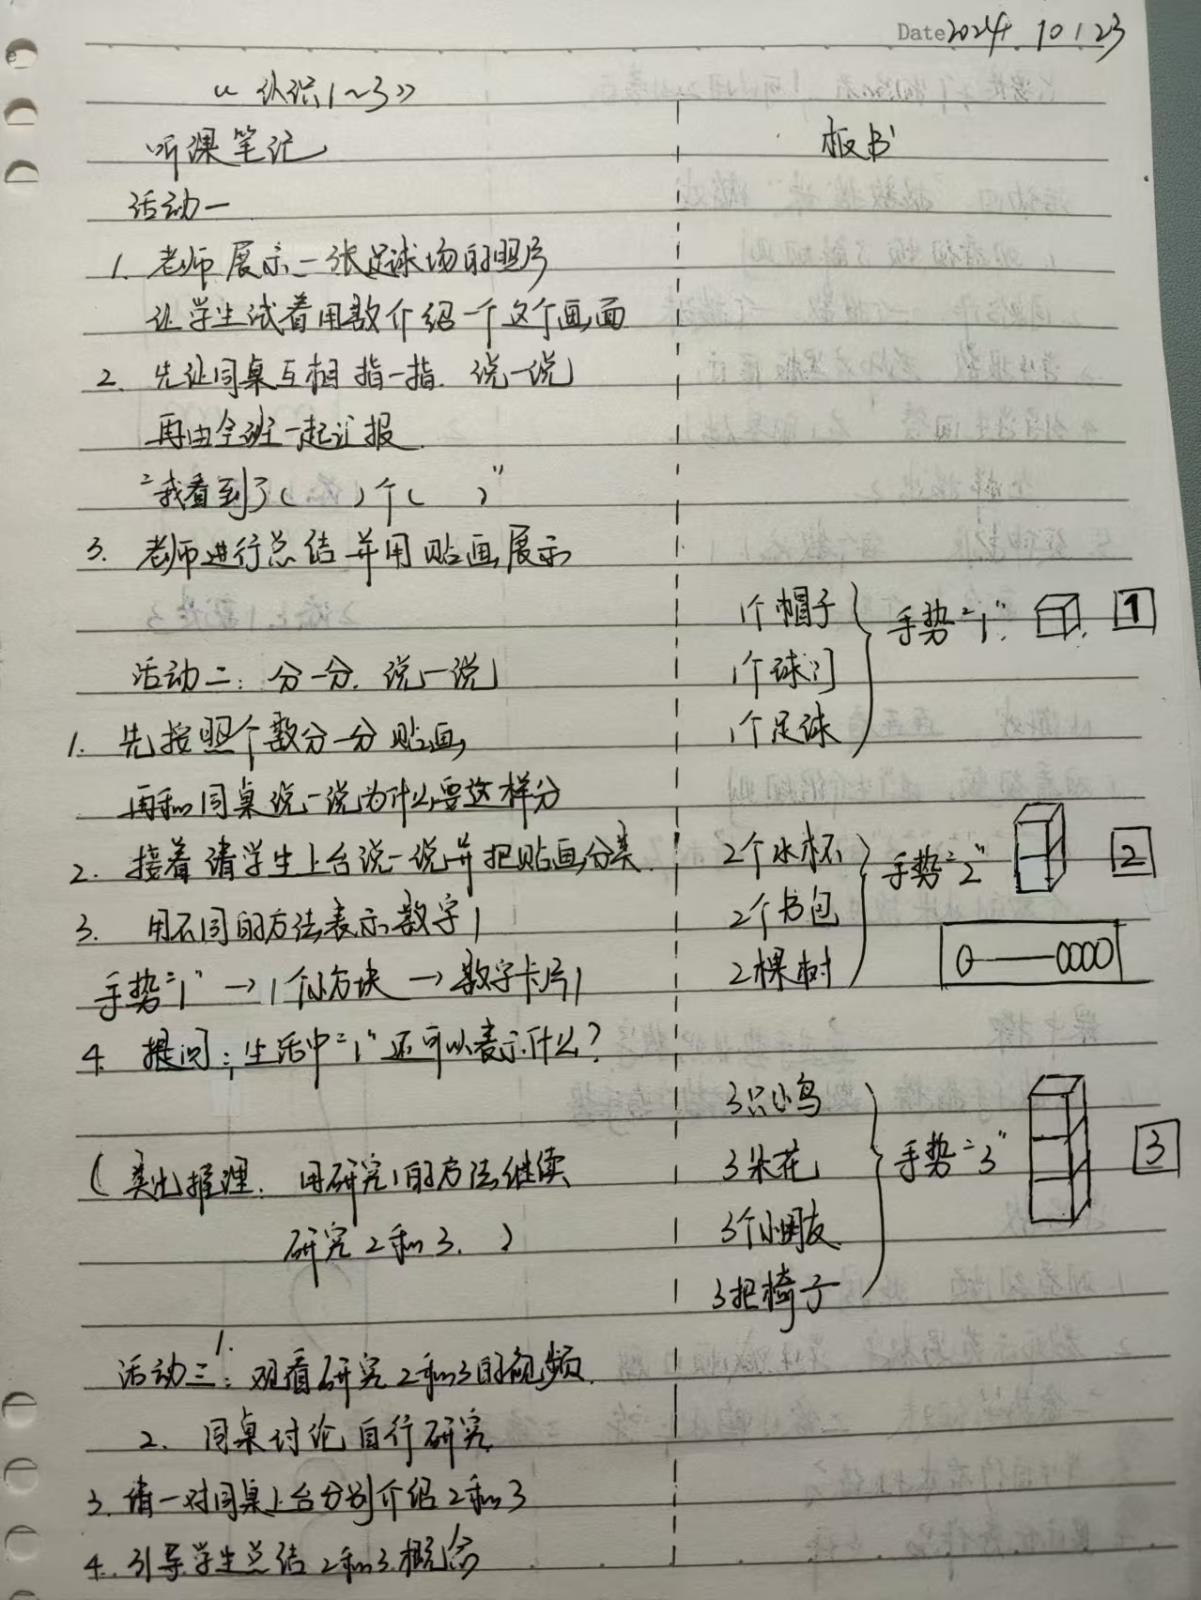 Date 2024 10 / 23
《认识1～3》
听课笔记
板书
活动一
1. 老师展示一张足球场的照片
让学生试着用数介绍一个这个画面
2. 先让同桌互相指一指.说一说
再由全班一起汇报.
"我看到了( )个( )"
3. 老师进行总结并用贴画展示
活动二: 分一分.说一说
1. 先按照个数分一分贴画,
再和同桌说一说为什么要这样分
2. 接着请学生上台说一说并把贴画分类.
3. 用不同的方法表示数字1
手势"1" → 1个小方块 → 数字卡片1
4. 提问: 生活中"1"还可以表示什么?
(类比推理. 用研究1的方法继续
研究2和3.)
活动三: 1. 观看研究2和3的视频.
2. 同桌讨论自行研究
3. 请一对同桌上台分别介绍2和3
4. 引导学生总结2和3概念
1个帽子
1个球门
1个足球
手势"1". 1
2个水杯
2个书包
2棵树
手势"2" 2
3只小鸟
3朵花
3个小朋友
3把椅子
手势"3" 3